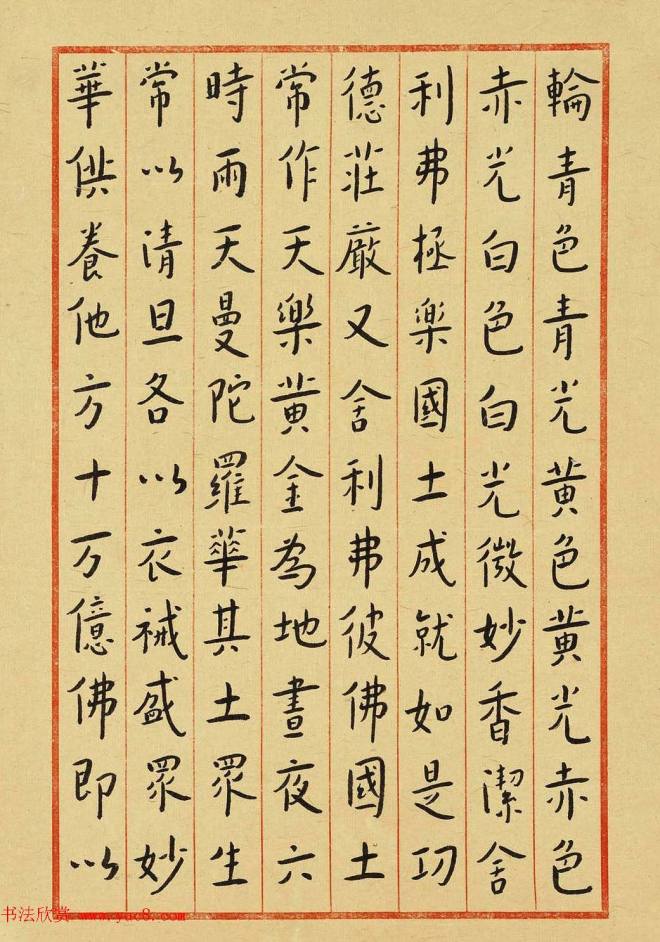 輪青色青光黄色黄光赤色
赤光白色白光微妙香潔舍
利弗極樂國土成就如是功
德莊嚴又舍利弗彼佛國土
常作天樂黄金為地晝夜六
時雨天曼陀羅華其土眾生
常以清旦各以衣裓盛眾妙
華供養他方十万億佛即以
书法欣赏 www.yac8.com